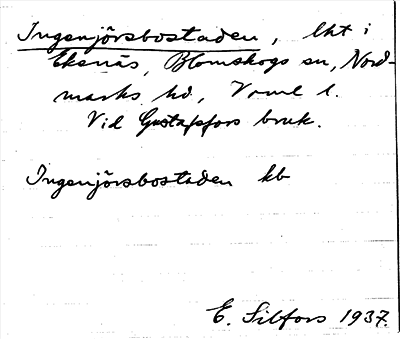 Ingenjörsbostaden, lht i
Ekenäs, Blomskogs sn, Nord-
marks hd, Värml l.
Vid Gustafsfors bruk.
Ingenjörsbostaden kb
E. Silfors 1937.